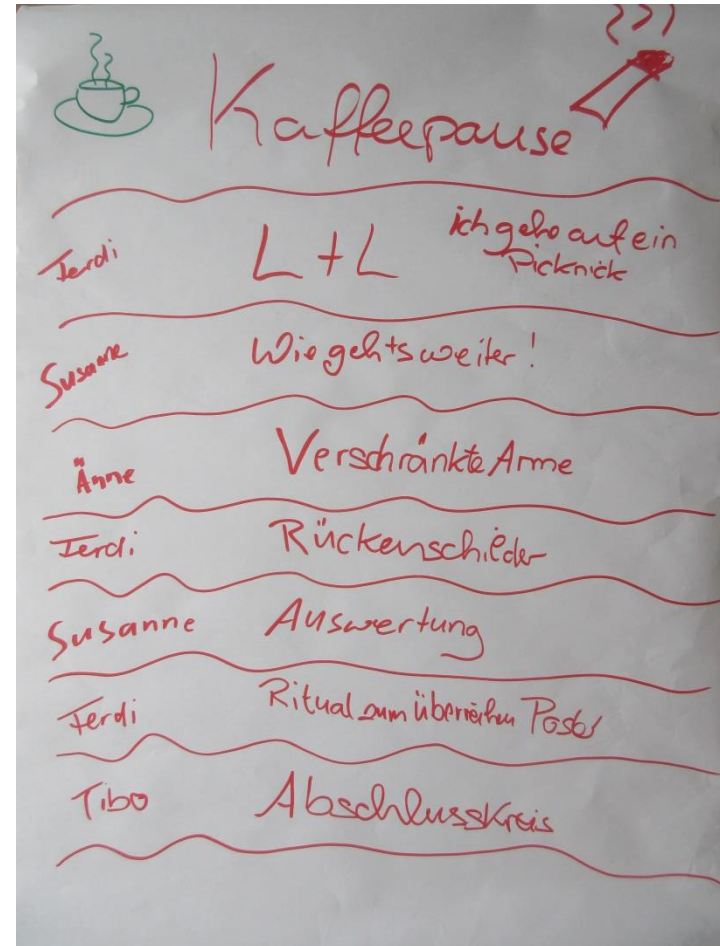 Kaffeepause
Ferdi L + L ich gehe auf ein
Picknick
Susanne Wie geht's weiter!
Änne Verschränkte Arme
Ferdi Rückenschilder
Susanne Auswertung
Ferdi Ritual zum überreichen Poster
Tibo Abschlusskreis